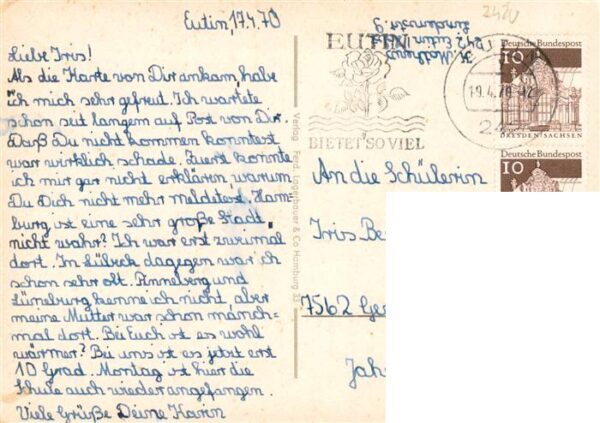 Eutin, 17.4.70
Liebe Iris!
Als die Karte von Dir ankam, habe
ich mich sehr gefreut. Ich wartete
schon seit langem auf Post von Dir.
Daß Du nicht kommen konntest
war wirklich schade. Zuerst konnte
ich mir gar nicht erklären, warum
Du Dich nicht mehr meldetest. Ham-
burg ist eine sehr große Stadt,
nicht wahr? Ich war erst zweimal
dort. In Lübeck dagegen war ich
schon sehr oft. Pinneberg und
Lüneburg kenne ich nicht, aber
meine Mutter war schon manch-
mal dort. Bei Euch ist es wohl
wärmer? Bei uns ist es jetzt erst
10 Grad. Montag ist hier die
Schule auch wieder angefangen.
Viele Grüße Deine Karin
Verlag Ferd. Lagerbauer & Co Hamburg
2420
242 Eutin
EUTIN
BIETET SO VIEL
19.4.70
Deutsche Bundespost
10
DRESDEN/SACHSEN
Deutsche Bundespost
10
An die Schülerin
Iris Be
7562 Ge
Jah